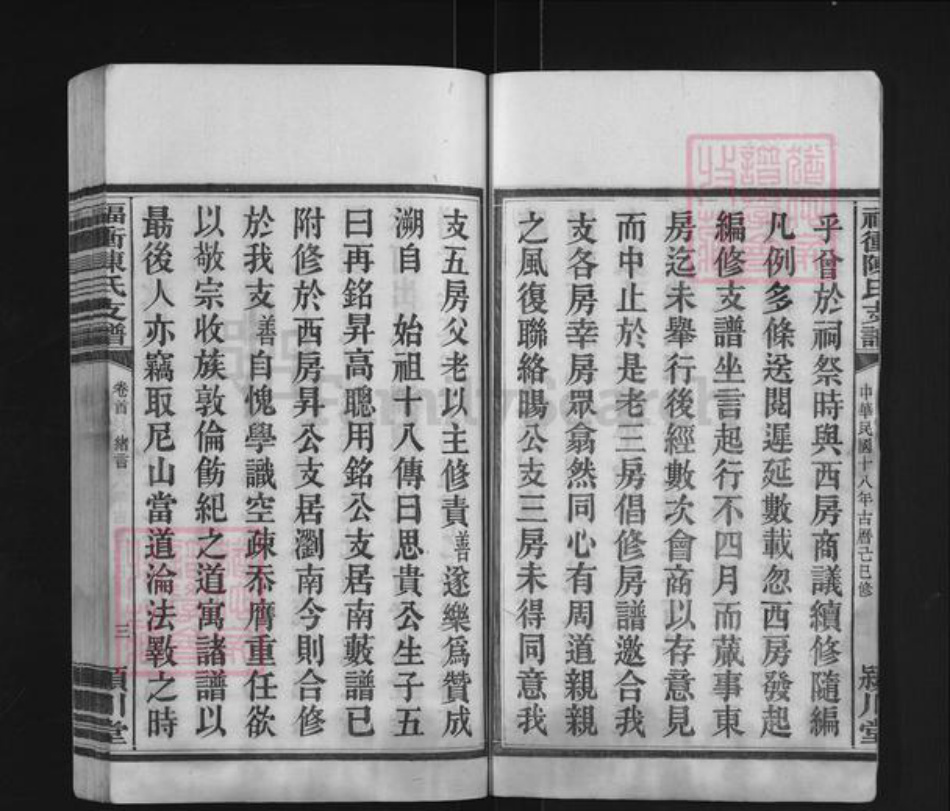 中華民國十八年古曆己巳修
乎曾於祠祭時與西房商議續修隨編
凡例多條送閱遲延數載忽西房發起
編修支譜坐言起行不四月而蕆事東
房迄未舉行後經數次會商以存意見
而中止於是老三房倡修房譜邀合我
支各房幸房眾翕然同心有周道親親
之風復聯絡暘公支三房未得同意我
支五房父老以主修責善遂樂爲贊成
溯自 始祖十八傳曰思貴公生子五
曰再銘昇高聰用銘公支居南藪譜已
附修於西房昇公支居瀏南今則合修
於我支善自愧學識空疎忝膺重任欲
以敬宗收族敦倫飭紀之道寓諸譜以
朂後人亦竊取尼山當道淪法斁之時
陳氏支譜
卷首 緒言
三
川堂